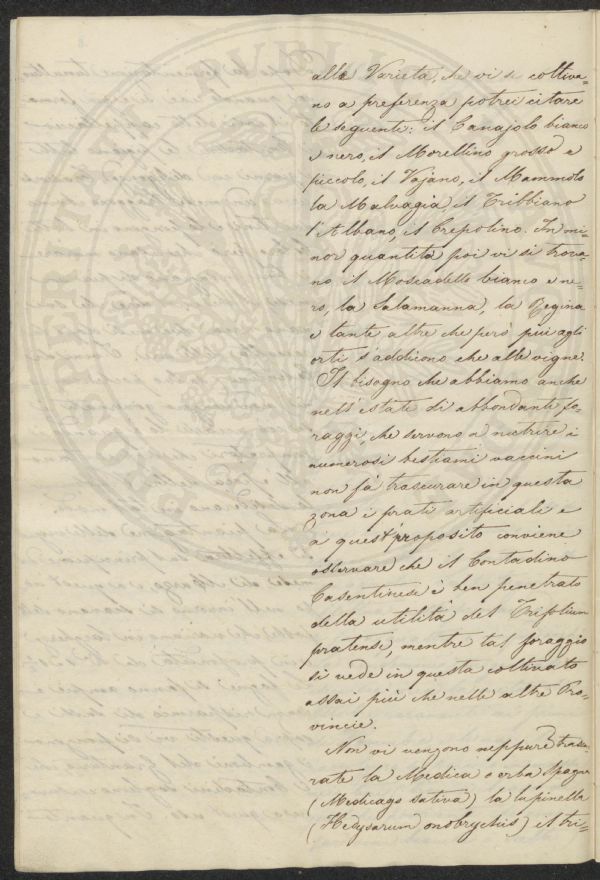 alle Varietà, che vi si coltiva-
no a preferenza potrei citare
le seguenti: il Canajolo bianco
e nero, il Morellino grosso e
piccolo, il Vajano, il Mammolo
la Malvagia, il Tribbiano
l'Albano, il Crepolino. In mi-
nor quantità poi vi si trova-
no, il Moscadello bianco e ne-
ro, la Salamanna, la Regina
e tante altre che però più agli
orti s'addicono che alle vigne.
Il bisogno che abbiamo anche
nell'estate di abbondanti fo-
raggi, che servono a nutrire i
numerosi bestiami vaccini
non fà trascurare in questa
zona i prati artificiali e
a quest'proposito conviene
osservare che il Contadino
Casentinese è ben penetrato
della utilità del Trifolium
pratense, mentre tal foraggio
si vede in questa coltivato
assai più che nelle altre Pro-
vincie.
Non vi vengono neppure trascu-
rate la Medica o erba Spagna
(Medicago sativa) la lupinella
(Hedysarum onobrychis) il tri-